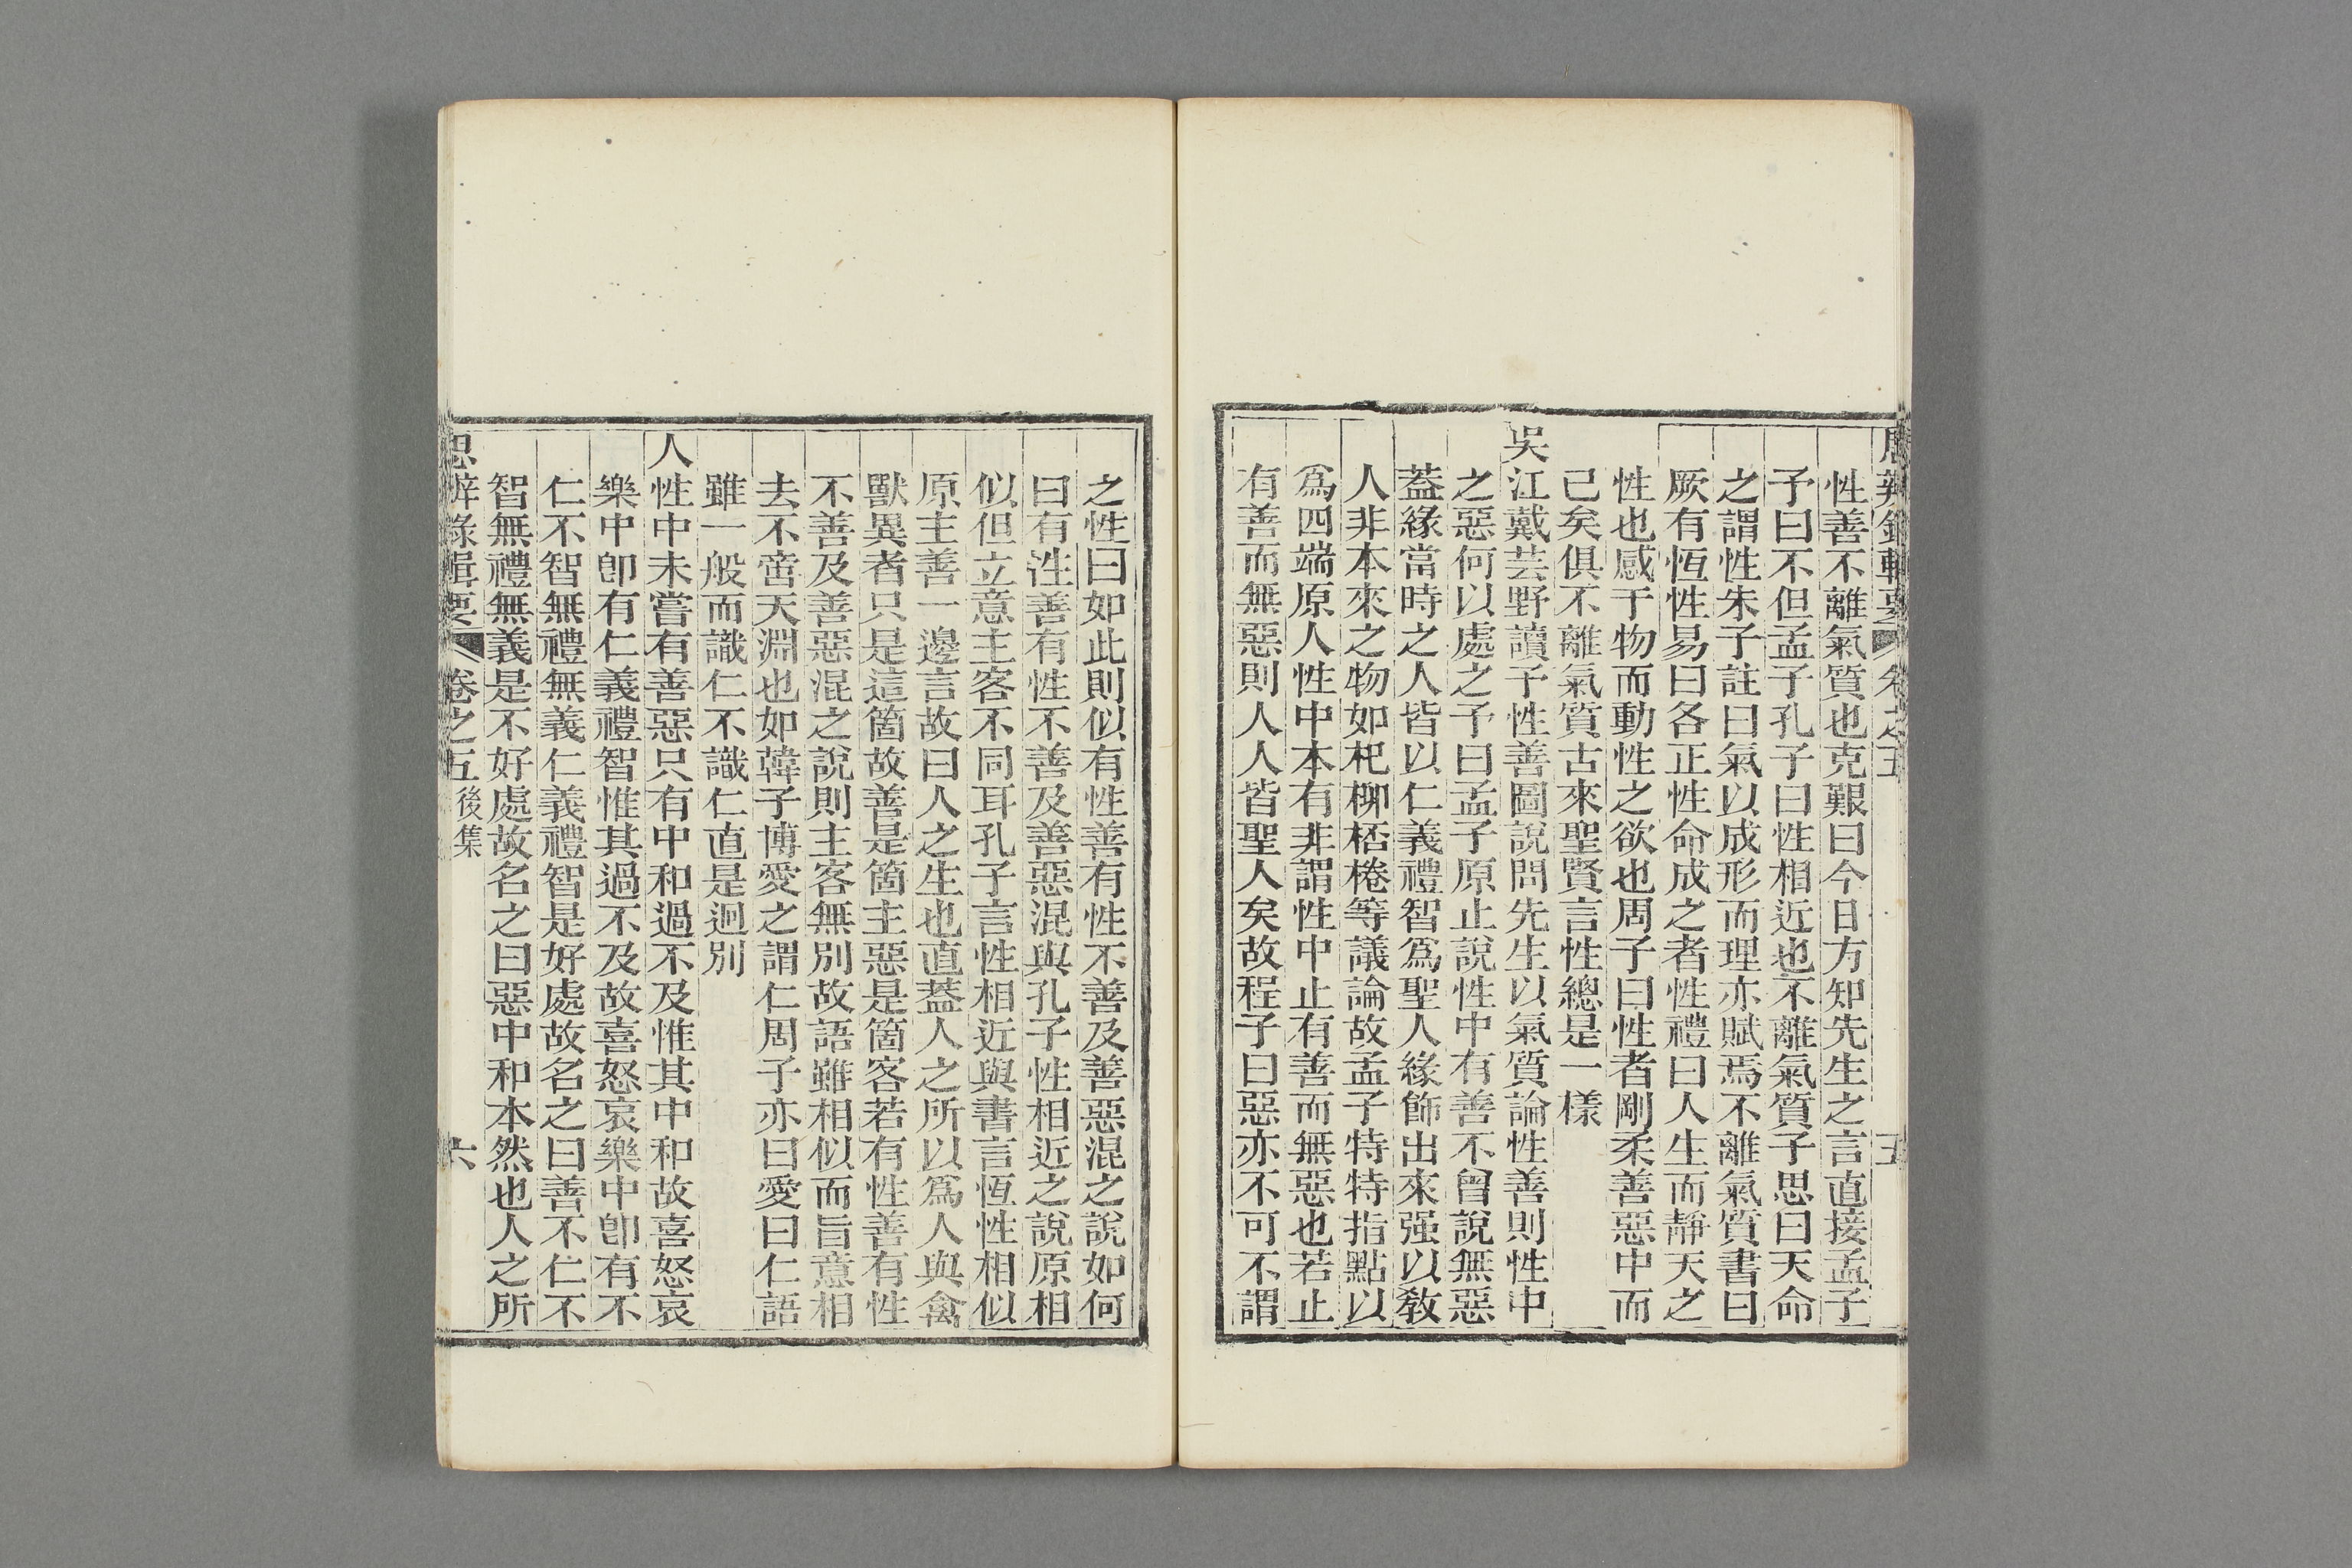 思辨錄輯要 卷之五 五
性善不離氣質也克艱曰今日方知先生之言直接孟子
予曰不但孟子孔子曰性相近也不離氣質子思曰天命
之謂性朱子註曰氣以成形而理亦賦焉不離氣質書曰
厥有恆性易曰各正性命成之者性禮曰人生而靜天之
性也感于物而動性之欲也周子曰性者剛柔善惡中而
己矣俱不離氣質古來聖賢言性總是一樣
吳江戴芸野讀予性善圖說問先生以氣質論性善則性中
之惡何以處之予曰孟子原止說性中有善不曾說無惡
蓋緣當時之人皆以仁義禮智爲聖人緣飾出來强以敎
人非本來之物如杞柳桮棬等議論故孟子特特指點以
爲四端原人性中本有非謂性中止有善而無惡也若止
有善而無惡則人人皆聖人矣故程子曰惡亦不可不謂
之性曰如此則似有性善有性不善及善惡混之說如何
曰有性善有性不善及善惡混與孔子性相近之說原相
似但立意主客不同耳孔子言性相近與書言恆性相似
原主善一邊言故曰人之生也直蓋人之所以爲人與禽
獸異者只是這箇故善是箇主惡是箇客若有性善有性
不善及善惡混之說則主客無別故語雖相似而旨意相
去不啻天淵也如韓子博愛之謂仁周子亦曰愛曰仁語
雖一般而識仁不識仁直是迥別
人性中未嘗有善惡只有中和過不及惟其中和故喜怒哀
樂中卽有仁義禮智惟其過不及故喜怒哀樂中卽有不
仁不智無禮無義仁義禮智是好處故名之曰善不仁不
智無禮無義是不好處故名之曰惡中和本然也人之所
思辨錄輯要 卷之五後集 六